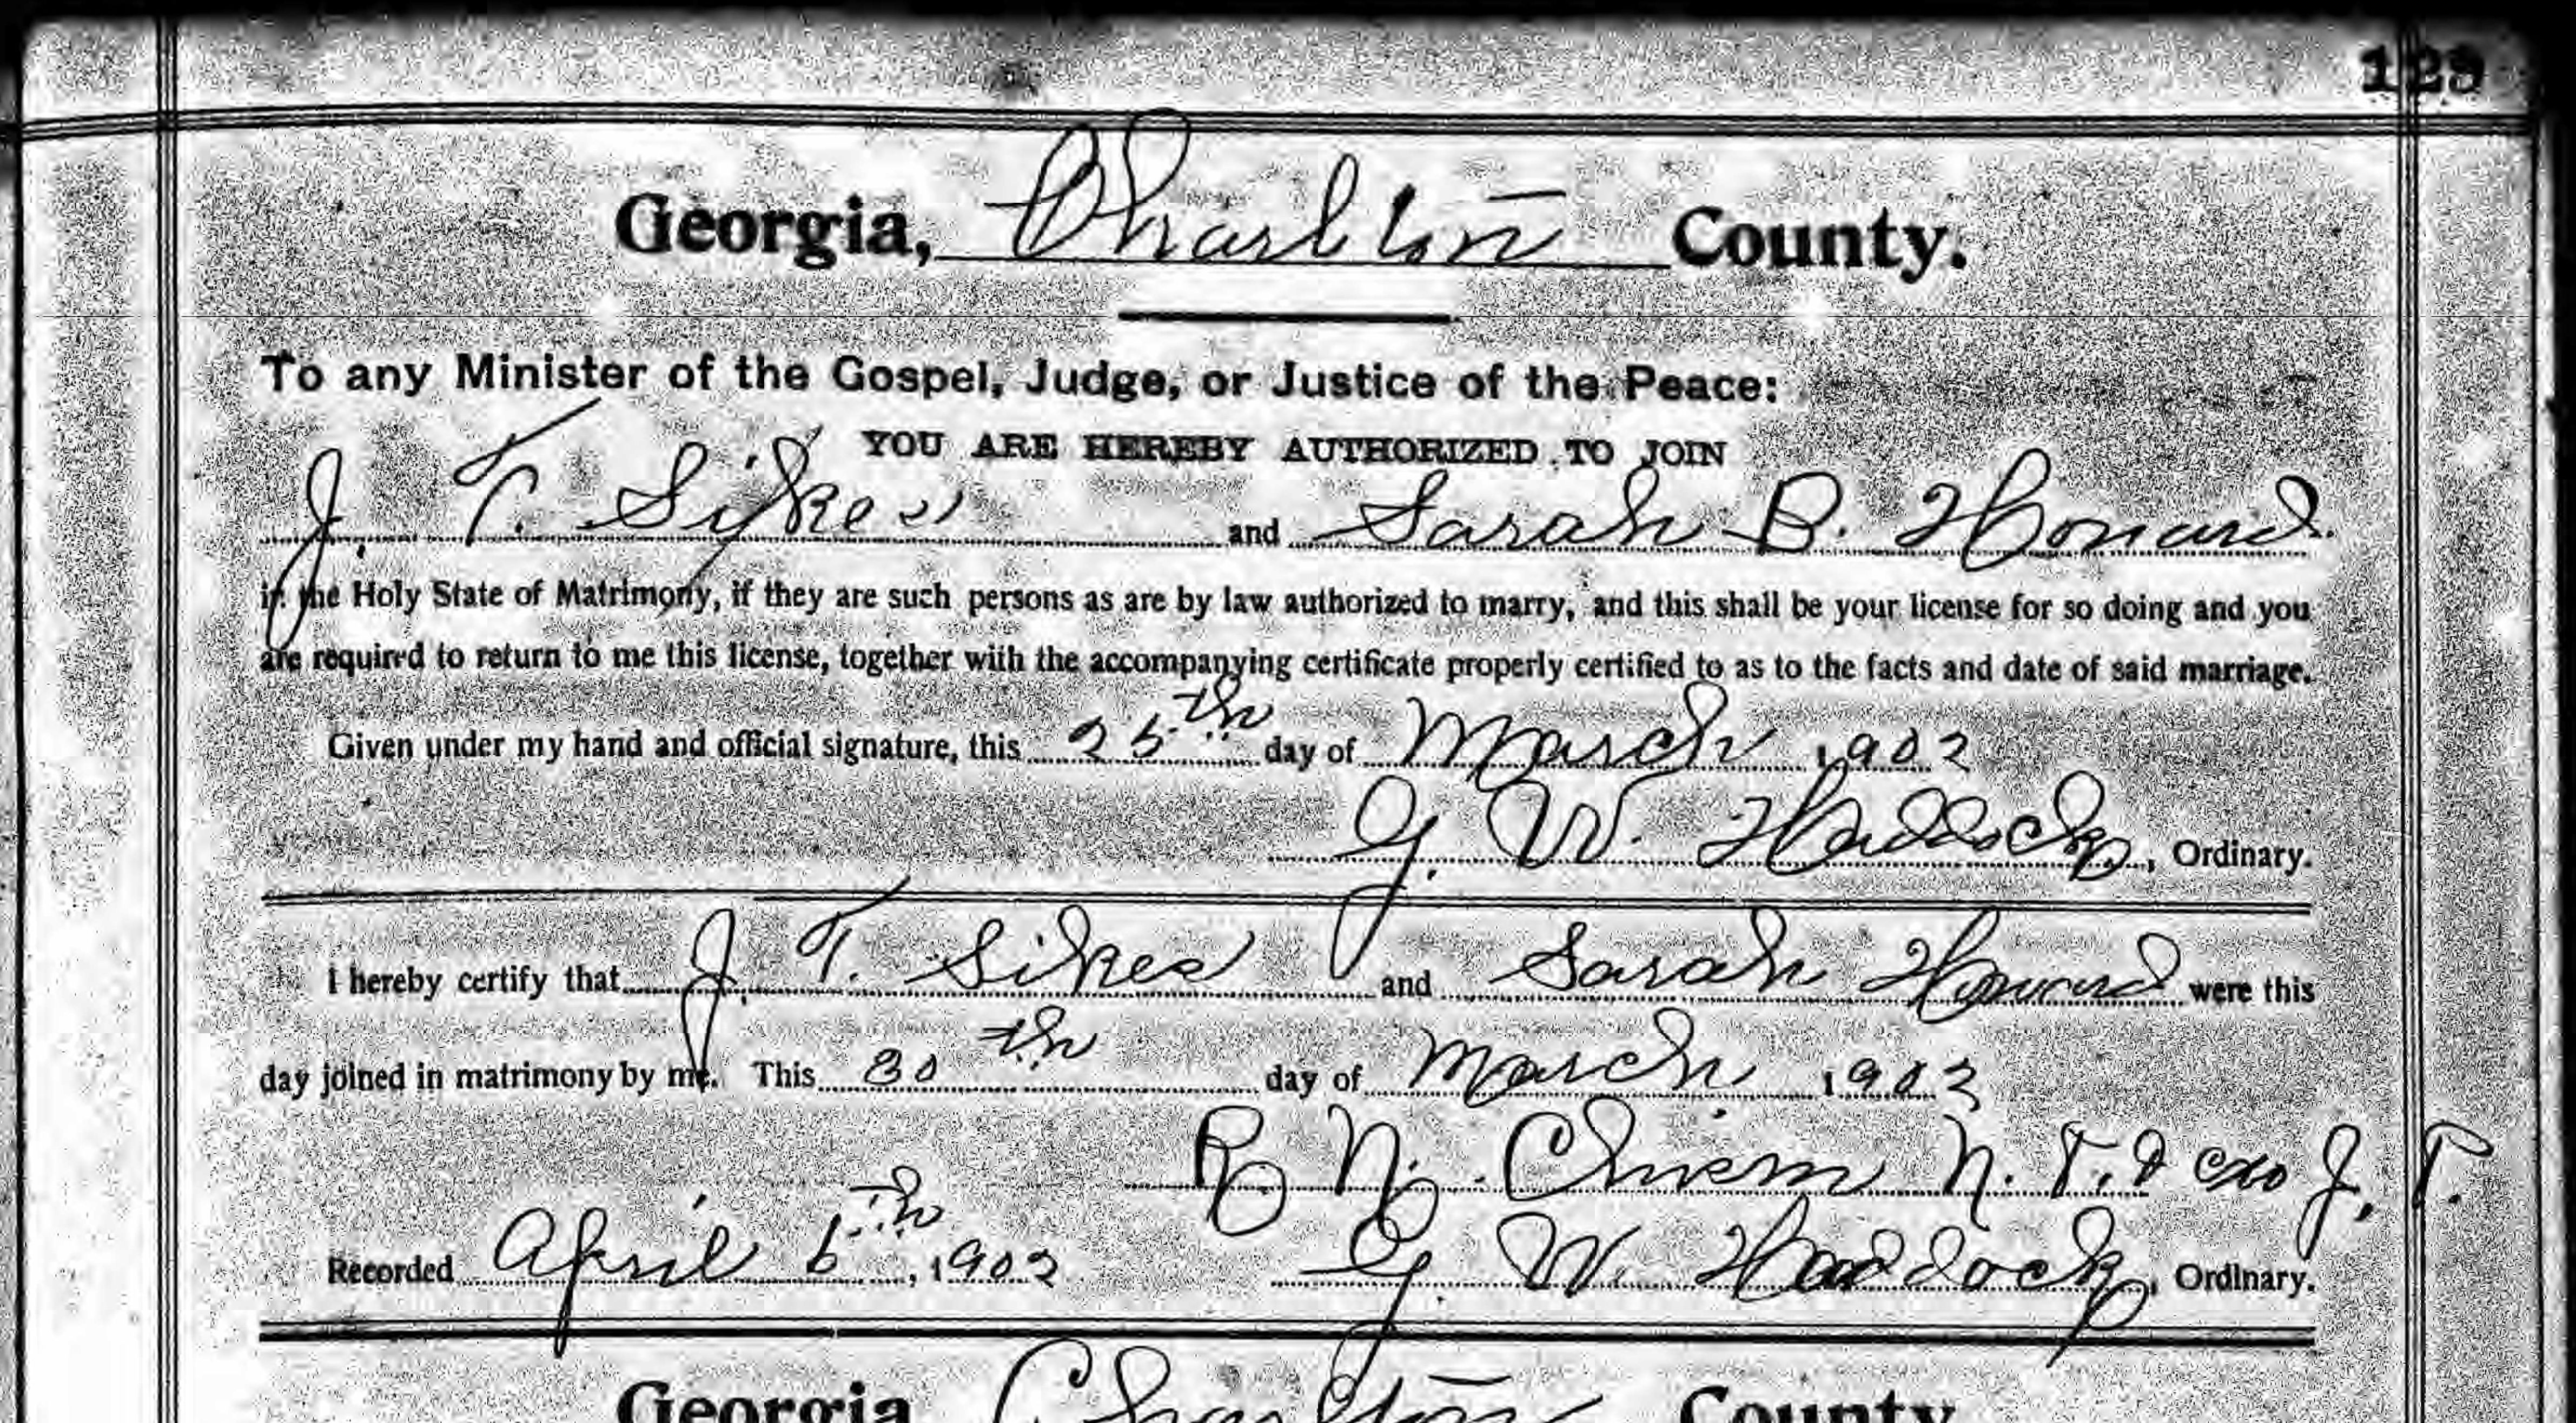 129
Georgia, Charlton County.
To any Minister of the Gospel, Judge, or Justice of the Peace:
YOU ARE HEREBY AUTHORIZED TO JOIN
J. T. Sikes and Sarah B. Howard
in the Holy State of Matrimony, if they are such persons as are by law authorized to marry, and this shall be your license for so doing and you
are required to return to me this license, together with the accompanying certificate properly certified to as to the facts and date of said marriage.
Given under my hand and official signature, this 25th day of March 1902
G. W. Haddock, Ordinary.
I hereby certify that J. T. Sikes and Sarah Howard were this
day joined in matrimony by me. This 30th day of March 1902
B. N. N. J. P.
Recorded April 6th, 1902 G. W. Haddock, Ordinary.
Georgia Charlton County